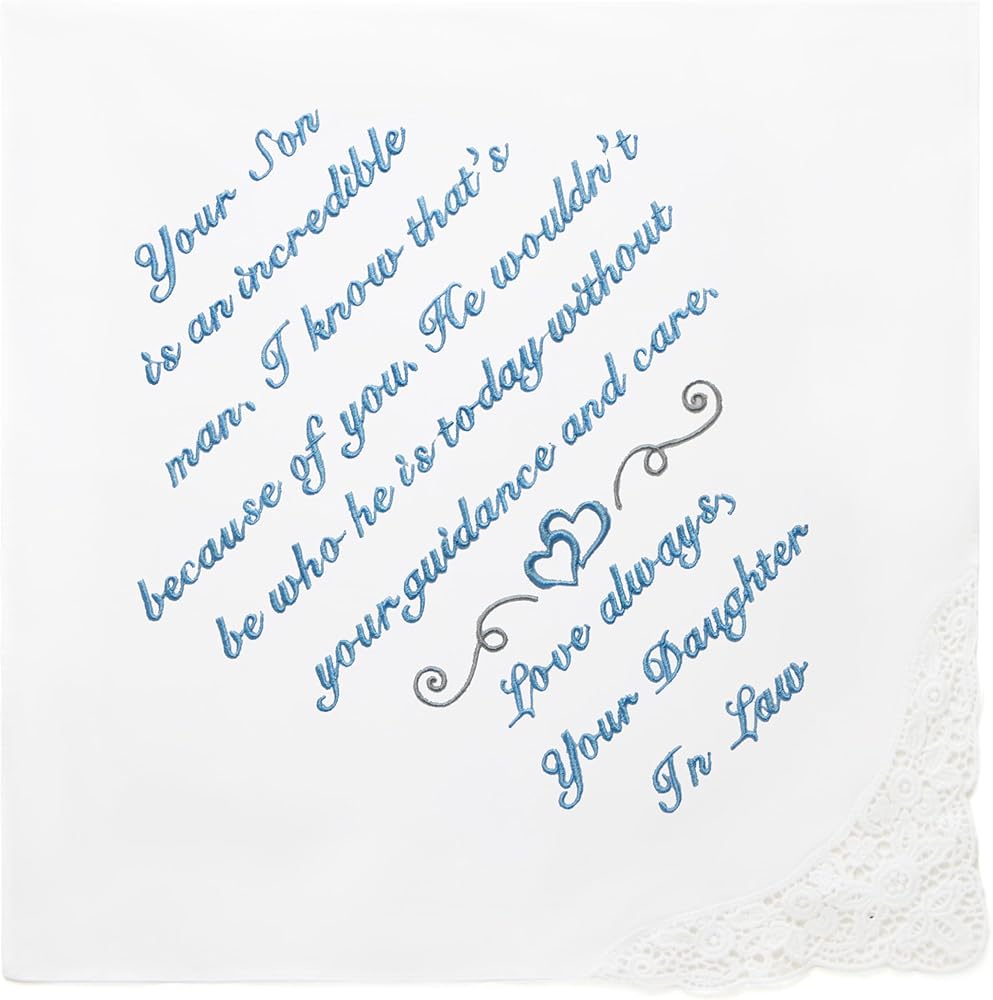 Your Son
is an incredible
man. I know that's
because of you. He wouldn't
be who he is today without
your guidance and care.
Love always,
Your Daughter
In Law